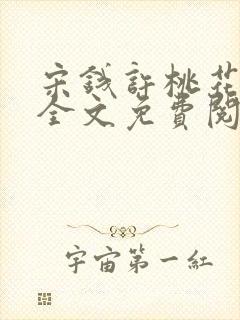 宋錢許桃花
全文免費閱
宇宙第一紅